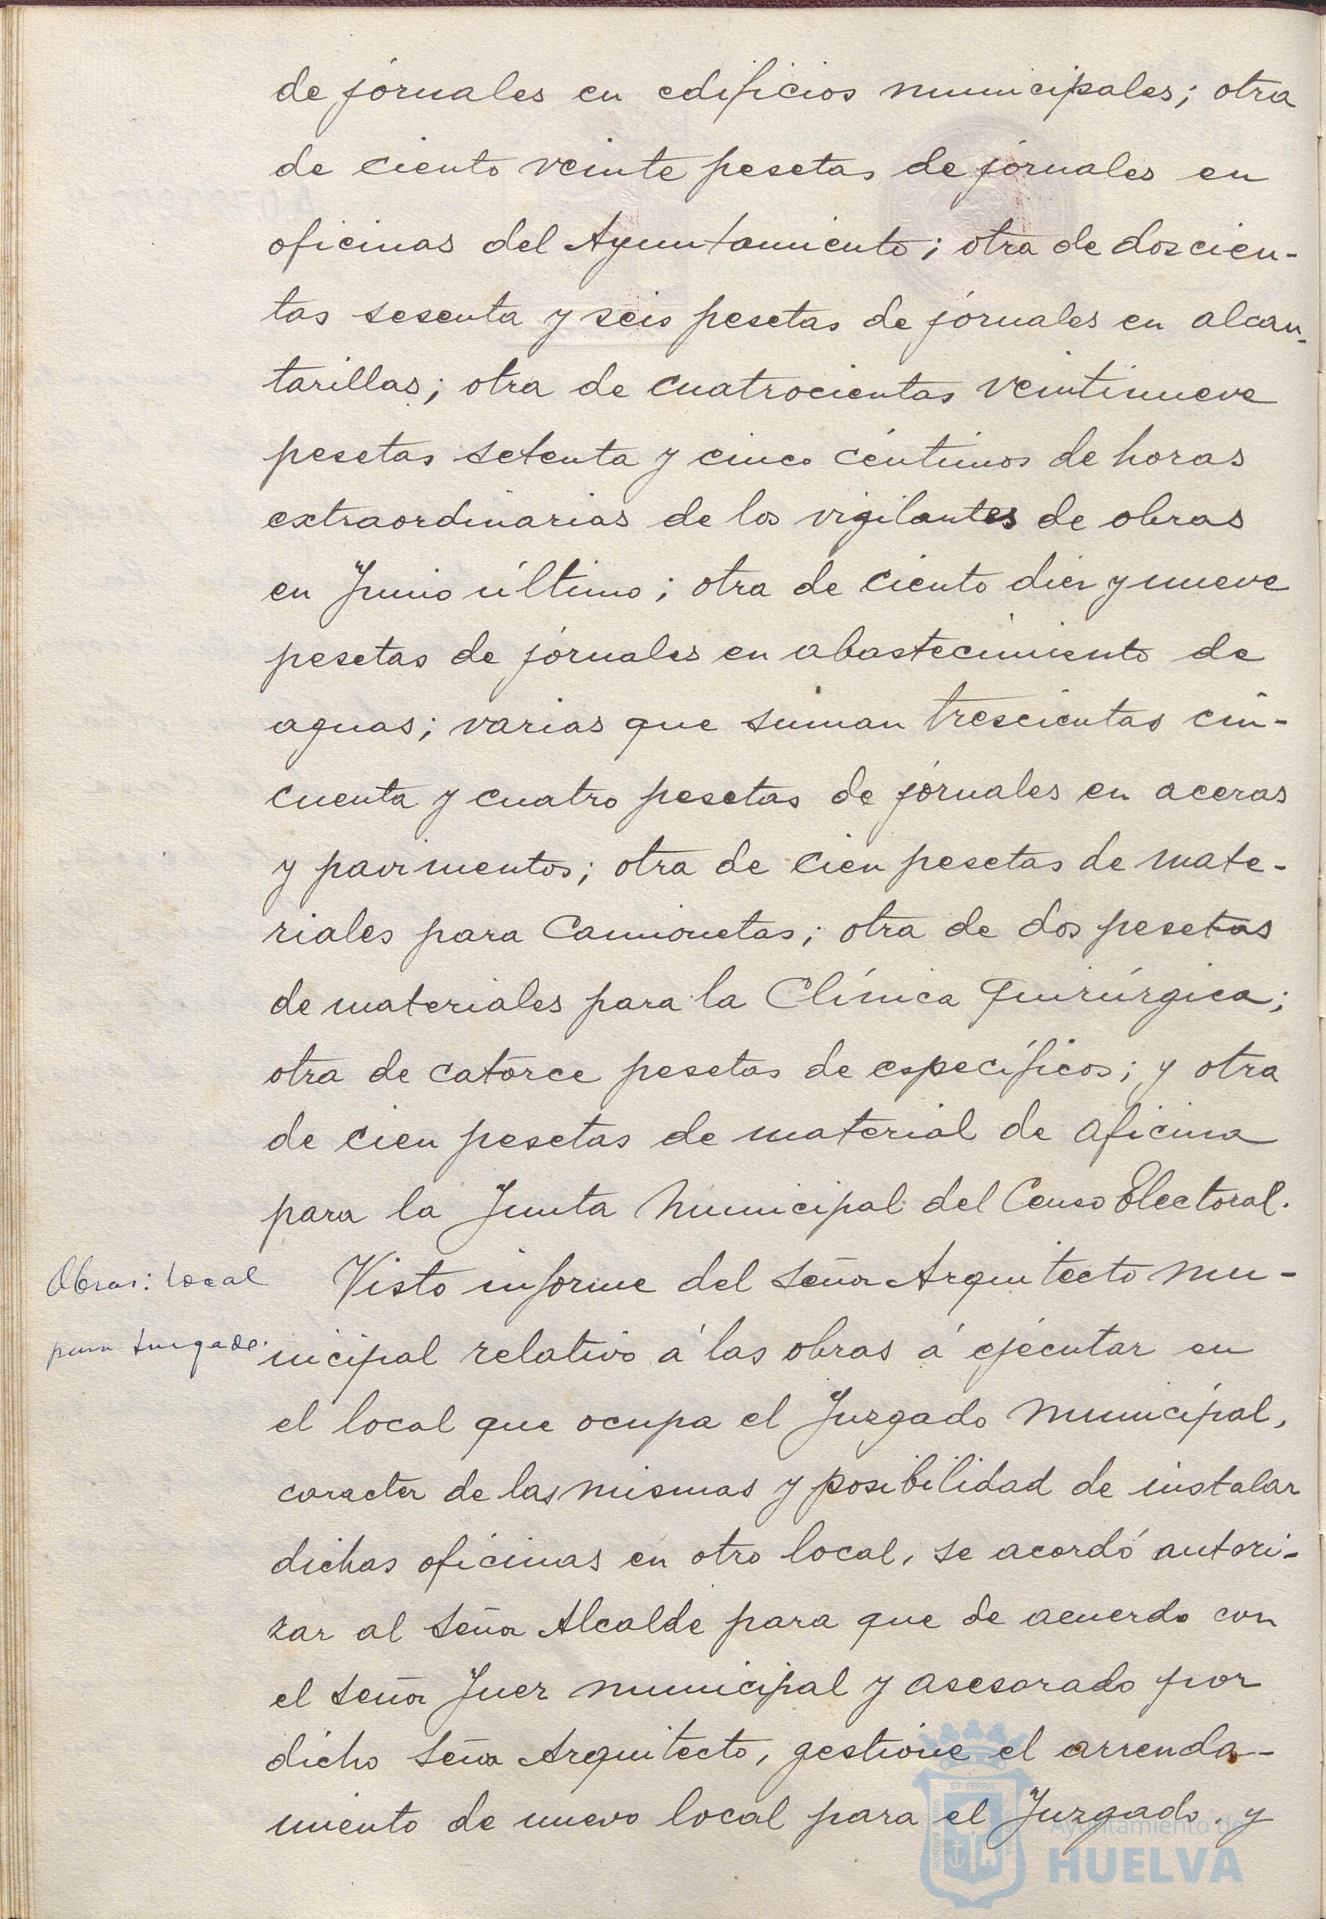 de jornales en edificios municipales; otra
de ciento veinte pesetas de jornales en
oficinas del Ayuntamiento; otra de doscien-
tas sesenta y seis pesetas de jornales en alcan-
tarillas; otra de cuatrocientas veintinueve
pesetas setenta y cinco céntimos de horas
extraordinarias de los vigilantes de obras
en Junio último; otra de ciento diez y nueve
pesetas de jornales en abastecimiento de
aguas; varias que suman trescientas cin-
cuenta y cuatro pesetas de jornales en aceras
y pavimentos; otra de cien pesetas de mate-
riales para camionetas; otra de dos pesetas
de materiales para la Clínica Quirúrgica;
otra de catorce pesetas de específicos; y otra
de cien pesetas de material de oficina
para la Junta Municipal del Censo Electoral.
Obras: local
para Juzgado.
Visto informe del señor Arquitecto mu-
nicipal relativo á las obras á ejecutar en
el local que ocupa el Juzgado municipal,
caracter de las mismas y posibilidad de instalar
dichas oficinas en otro local, se acordó autori-
zar al señor Alcalde para que de acuerdo con
el señor Juez municipal y asesorado por
dicho señor Arquitecto, gestione el arrenda-
miento de nuevo local para el Juzgado, y
Ayuntamiento de
HUELVA